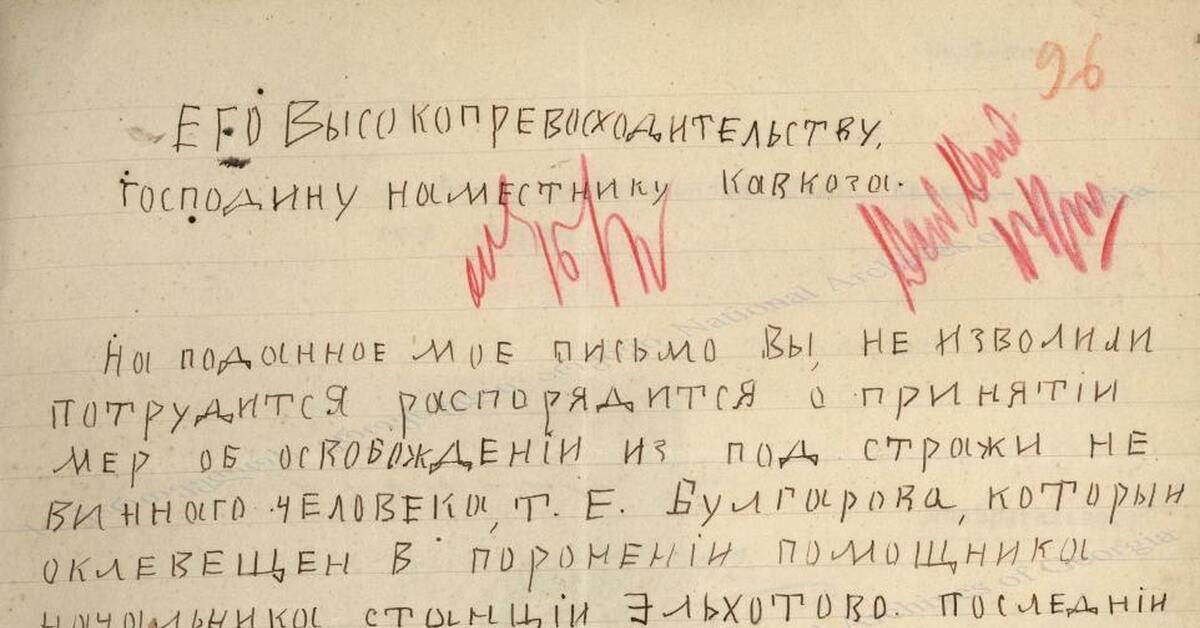 96
ЕГО ВЫСОКОПРЕВОСХОДИТЕЛЬСТВУ,
ГОСПОДИНУ НАМЕСТНИКУ КАВКОЗА.
На поданное мое письмо Вы, не изволили
потрудится распорядится о принятіи
мер об освобожденіи из под стражи не
винного человека, т. е. Булгарова, которыи
оклевещен в пороненіи помощника
начальника станціи Эльхотово. последніи